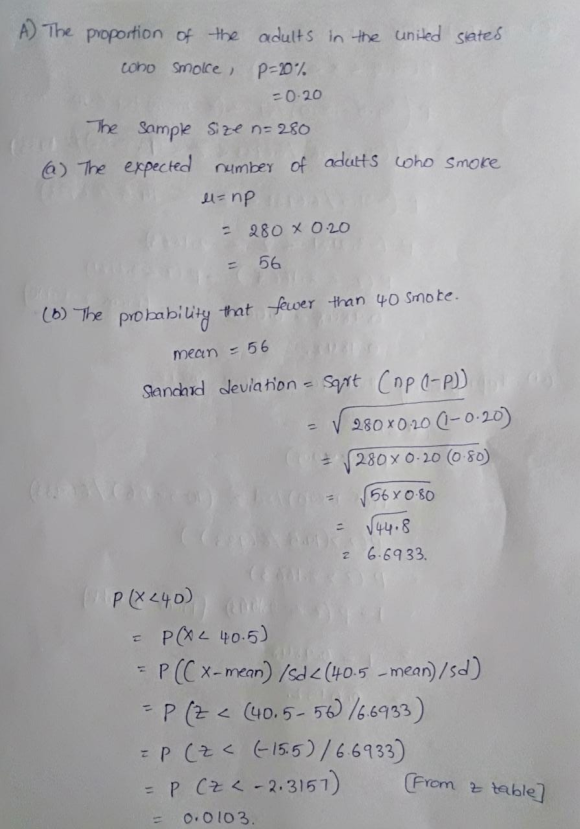 A) The proportion of the adults in the united states
who smoke, p=20%
=0.20
The sample size n=280
(a) The expected number of adults who smoke
μ=np
= 280 × 0.20
= 56
(b) The probability that fewer than 40 smoke.
mean = 56
Standard deviation = sqrt (np(1-p))
= √280×0.20 (1-0.20)
= √280×0.20 (0.80)
= √56×0.80
= √44.8
= 6.6933.
P(X<40)
= P(X< 40.5)
= P((X-mean)/sd<(40.5-mean)/sd)
= P (z < (40.5-56)/6.6933)
= P (z < (-15.5)/6.6933)
= P (z < -2.3157) [From z table]
= 0.0103.